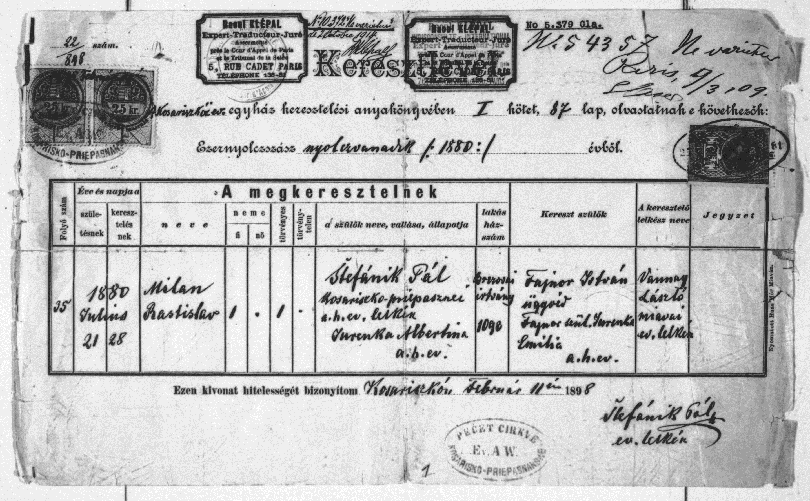 22 szám.
898
Raoul KLÉPAL
Expert-Traducteur-Juré
Assermenté
près la Cour d'Appel de Paris
et le Tribunal de la Seine
5, RUE CADET PARIS
TÉLÉPHONE
Raoul KLÉPAL
Expert-Traducteur-Juré
Assermenté
près la Cour d'Appel de Paris
et le Tribunal de la Seine
5, RUE CADET PARIS
TÉLÉPHONE
No 5.379 Ola.
N. 5 43 57 Ne varietur
Paris, 9/3 09.
25 kr. 25 kr.
egyház keresztelési anyakönyvében I kötet, 87 lap, olvastatnak e következők:
Ezernyolczszáz nyolczvanadik /: 1880 :/ évből.
A megkeresztelnek
Folyó szám
Éve és napja a
születésnek
keresztelésnek
neve
neme
fi
nő
törvényes
törvénytelen
a szülők neve, vallása, állapotja
lakás házszám
Kereszt szülők
A keresztelő lelkész neve
Jegyzet
35
1880
Julius
21 28
Milan
Rastislav
1 . 1 .
Štefánik Pál
a.h.ev. lelkész
Jurenka Albertina
a.h.ev.
Fajnor István
ügyvéd
Fajnor szül. Jurenka
Emilia
a.h.ev.
László
miavai
ev. lelkész
Ezen kivonat hitelességét bizonyitom Kosariszkón Február 11én 1898
Štefánik Pál
ev. lelkész
PEČET CIRKVE
Ev. A W.
KOSARISKO-PRIEPASNANSKE
1